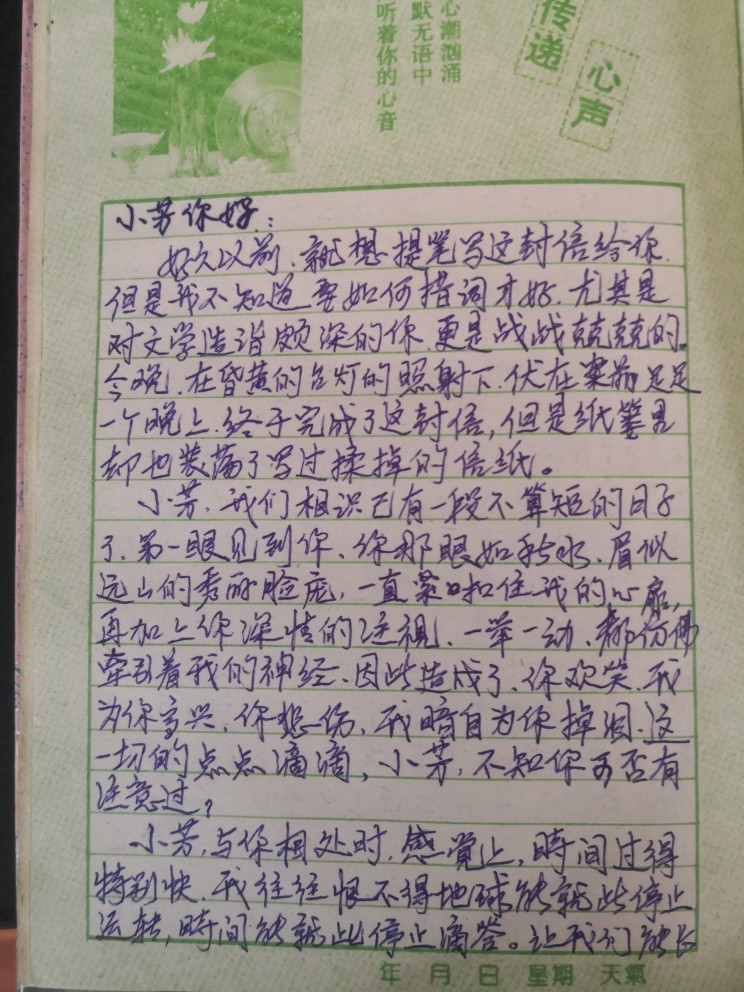 心潮汹涌
默无语中
听着你的心音
传递
心声
小芳你好:
好久以前、就想提笔写这封信给你、
但是我不知道要如何措词才好、尤其是
对文学造诣颇深的你、更是战战克克的。
今晚、在昏黄的台灯的照射下、伏在案前足足
一个晚上、终于完成了这封信,但是纸篓里
却也装满了写过揉掉的信纸。
小芳、我们相识已有一段不算短的日子
了、第一眼见到你、你那眼如秋水、眉似
远山的秀丽脸庞,一直紧扣住我的心扉,
再加上你深情的注视、一举一动、都仿佛
牵引着我的神经、因此造成了、你欢笑、我
为你高兴、你悲伤、我暗自为你掉泪、这
一切的点点滴滴,小芳,不知你可否有
注意过?
小芳,与你相处时,感覚上,時间过得
特别快、我往往恨不得地球能就此停止
运转,時间能就此停止滴答。让我们能长
年 月 日 星期 天氣